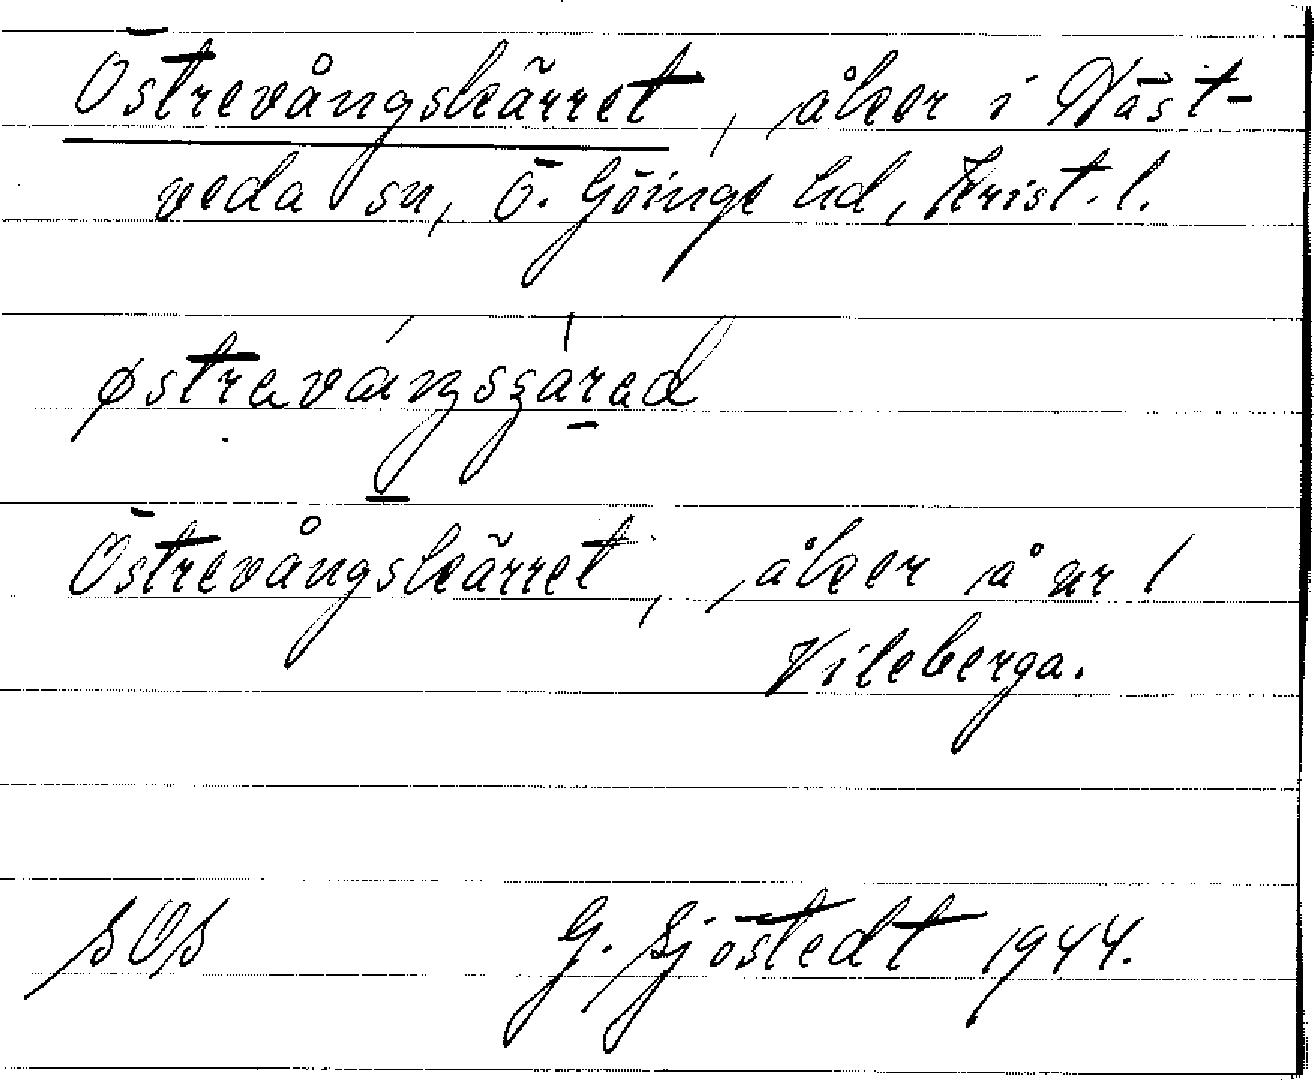 Östrevångskärret, åker i Näst-
veda sn, Ö. Göinge hd, Krist. l.
Östrevångskärret, åker å nr 1
Vileberga.
SOS G. Sjöstedt 1944.